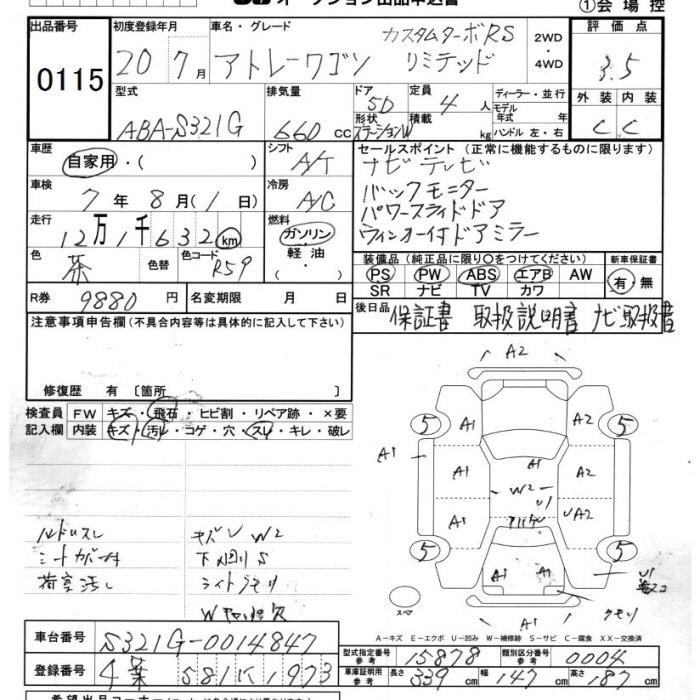 オークション出品申込書
①会場控
出品番号 初度登録年月 車名・グレード カスタムターボRS 2WD・4WD 評価点
0115 20年 7月 アトレーワゴン リミテッド 3.5
型式 排気量 ドア 定員 ディーラー・並行 外装 内装
ABA-S321G 660cc 5D 4人 モデル年式 年 C C
形状 ステーションW 積載 kg ハンドル 左・右
車歴 自家用・( ) シフト A/T
セールスポイント (正常に機能するものに限ります)
ナビ テレビ
車検 7年 8月(1日) 冷房 A/C
バックモニター
パワースライドドア
走行 12万1千632km 燃料 ガソリン・軽油・( )
ウィンカー付ドアミラー
色 茶 色替 色コード R59
装備品 (純正品に限り○をつけてください) 新車保証書
PS PW ABS エアB AW 有・無
SR ナビ TV カワ
R券 9880円 名変期限 月 日
後日品 保証書 取扱説明書 ナビ取扱書
注意事項申告欄(不具合内容等は具体的に記入して下さい)
修復歴 有 〔箇所 〕
検査員記入欄 FW キズ・飛石・ヒビ割・リペア跡・×要
内装 キズ・汚れ・コゲ・穴・スレ・キレ・破レ
A2
5 A2 5
A1 A1 A1 A2
W2 U1
A1 UA2
5 5
A1 A1 A1 U1
スペア A1 クモリ
ハンドルスレ キズ W2
シートカバー付 下廻りS
荷室汚し ライトクモリ
A-キズ E-エクボ U-凹み W-補修跡 S-サビ C-腐食 XX-交換済
車台番号 S321G-0014847
型式指定番号 参考 15878 類別区分番号 参考 0004
登録番号 千葉 581 1973
車庫証明用 参考 長さ 339cm 幅 147cm 高さ 187cm